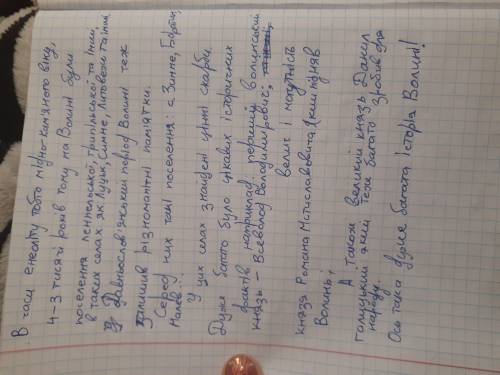 В часи енеоліту тобто мідно-кам'яного віку,
4-3 тисячі років тому на Волині були
поселення ленгельської, трипільської та інші,
в таких селах як Луцьк, Симне, Литовеж та інші
Давньослов'янський період Волині теж
залишив різноманітні пам'ятки.
Серед них такі поселення: с Зимне,
У цих селах знайдені цінні скарби.
Дуже багато було цікавих історичних
фактів наприклад перший волинський
князь - Всеволод Володимирович;
велич і могутність
князя Романа Мстиславовича який підняв
Волинь;
А також великий князь Данил
галицький який теж багато зробив для
народу.
Ось така дуже багата історія Волині!